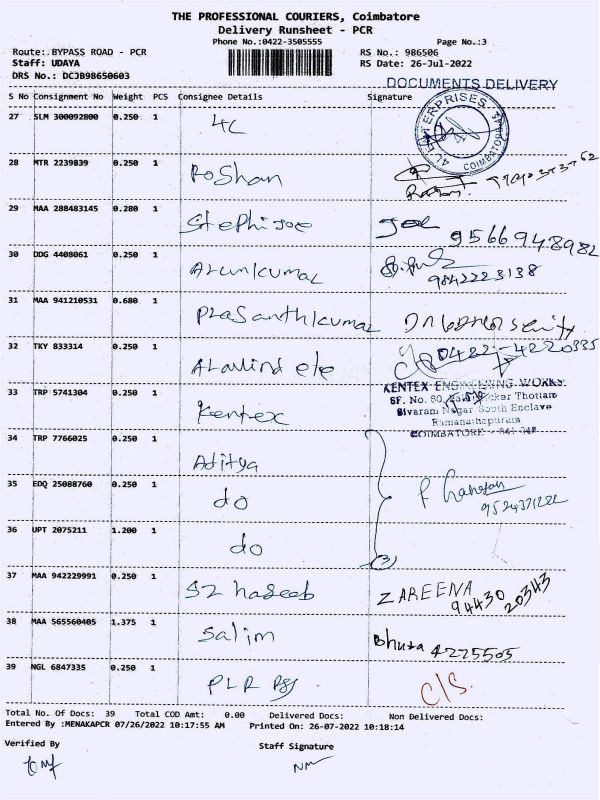 THE PROFESSIONAL COURIERS, Coimbatore
Delivery Runsheet - PCR
Phone No.:0422-3505555 Page No.:3
Route:.BYPASS ROAD - PCR RS No.: 986506
Staff: UDAYA RS Date: 26-Jul-2022
DRS No.: DCJB98650603
DOCUMENTS DELIVERY
S No Consignment No Weight PCS Consignee Details Signature
27 SLM 300092800 0.250 1 4L
4L ENTERPRISES COIMBATORE
28 MTR 2239839 0.250 1 Roshan
29 MAA 288483145 0.280 1 Stephi Joe Joe 9566948982
30 DDG 4408061 0.250 1 Arunkumar 9842223138
31 MAA 941210531 0.680 1 Prasanthkumar
32 TKY 833314 0.250 1 Aravind ele 0422-4220335
KENTEX ENGINEERING WORKS
SF. No. 50, Thottam
Sivaram Nagar South Enclave
Ramanathapuram
COIMBATORE
33 TRP 5741304 0.250 1 Kentex
34 TRP 7766025 0.250 1 Aditya
35 EDQ 25088760 0.250 1 do
36 UPT 2075211 1.200 1 do
(3)
37 MAA 942229991 0.250 1 SZ haseeb ZAREENA
94430 20343
38 MAA 565560405 1.375 1 Salim 4225505
39 NGL 6847335 0.250 1 PLR C/S.
Total No. Of Docs: 39 Total COD Amt: 0.00 Delivered Docs: Non Delivered Docs:
Entered By :MENAKAPCR 07/26/2022 10:17:55 AM Printed On: 26-07-2022 10:18:14
Verified By Staff Signature